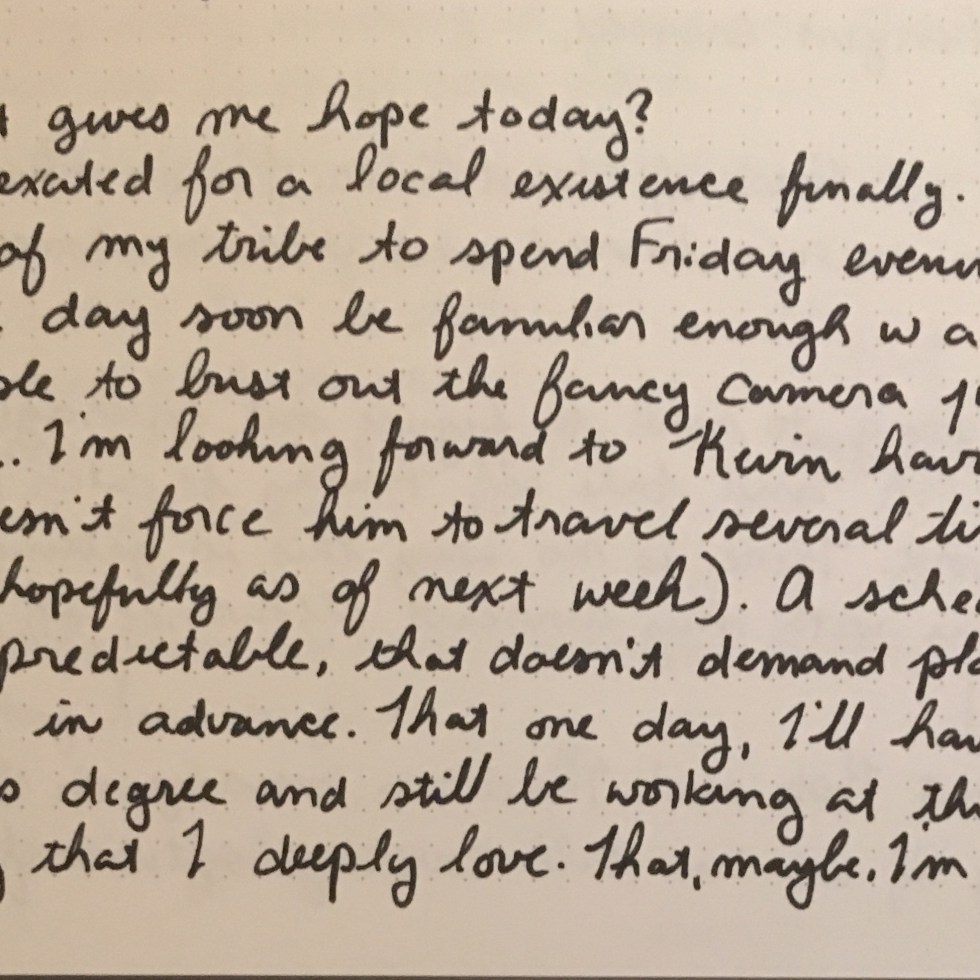 gives me hope today?
excited for a local existence finally.
of my tribe to spend Friday
day soon be familiar enough w a
to bust out the fancy camera
I'm looking forward to Kevin
force him to travel several
hopefully as of next week). A
predictable, that doesn't demand
in advance. That one day, I'll
degree and still be working at
that I deeply love. That, maybe, I'm